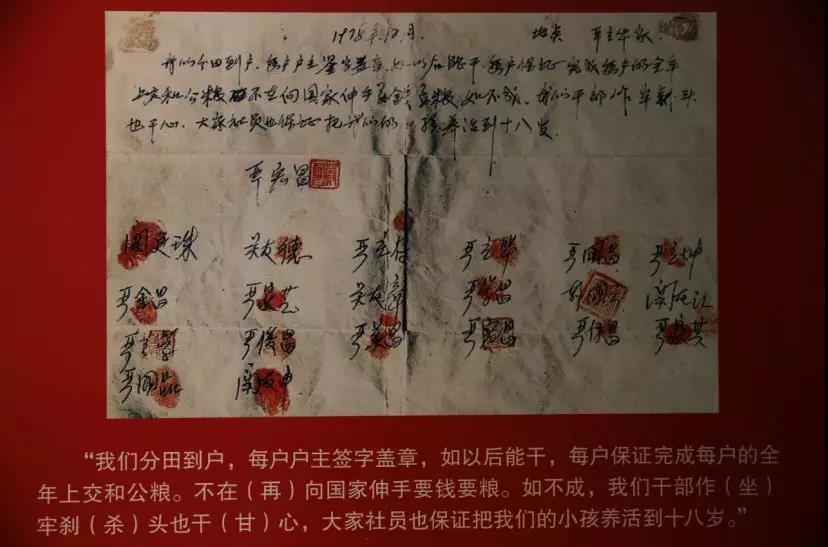 1978年12月. 地点 严立华家.
我们分田到户.每户户主签字盖章.如以后能干.每户保证完成每户的全年
上交和公粮.不在向国家伸手要钱要粮.如不成.我们干部作牢刹头
也干心.大家社员也保证把我们的小孩养活到十八岁.
严宏昌
関廷珠 关友德 严立符 严立华 严国昌 严立坤
严金昌 严家芝 关友章 严学昌 韩国云 関友江
严立学 严俊昌 严美昌 严宏昌 严付昌 严家其
严国品 関友申
“我们分田到户，每户户主签字盖章，如以后能干，每户保证完成每户的全
年上交和公粮。不在（再）向国家伸手要钱要粮。如不成，我们干部作（坐）
牢刹（杀）头也干（甘）心，大家社员也保证把我们的小孩养活到十八岁。”